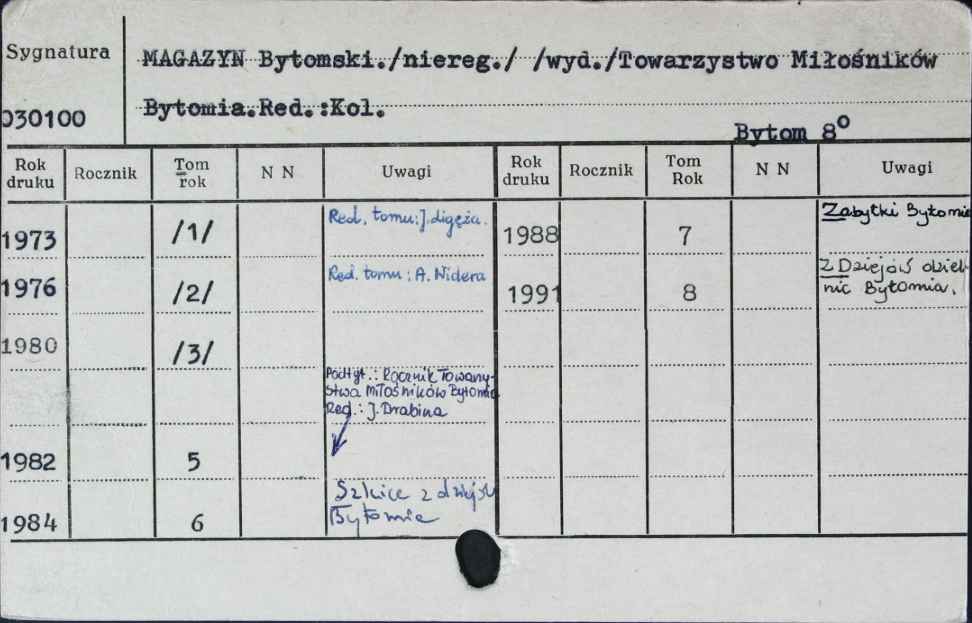 Sygnatura
MAGAZYN Bytomski./niereg./ /wyd./Towarzystwo Miłośników
030100
Bytomia.Red.:Kol.
Bytom 8°
Rok druku Rocznik Tom rok N N Uwagi Rok druku Rocznik Tom Rok N N Uwagi
1973 /1/ Red. tomu: J. 1988 7 Zabytki Bytomia
1976 /2/ Red. tomu: A. Nidera 1991 8 Z Dziejów dziel-
nic Bytomia.
1980 /3/
Podtyt.: Rocznik Towarzy-
stwa Miłośników Bytomia
Red.: J. Drabina
1982 5
Szkice z dziejów
1984 6 Bytomia